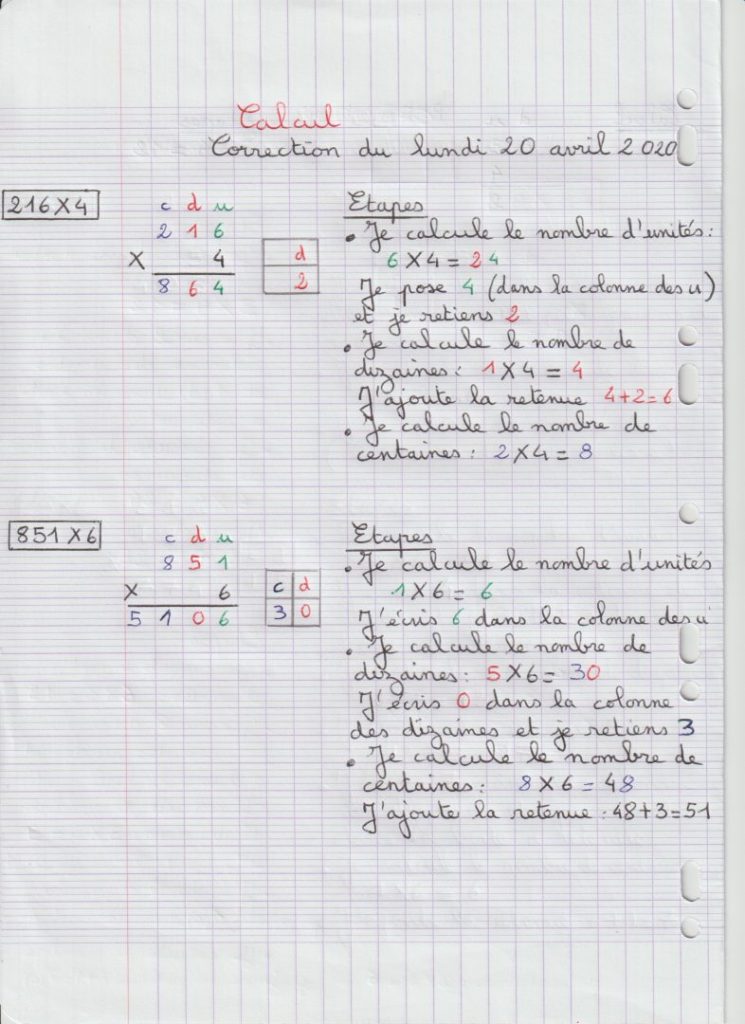 Calcul
Correction du lundi 20 avril 2020
216 X 4
c d u
2 1 6
X 4
8 6 4
d
2
Etapes
• Je calcule le nombre d'unités :
6 X 4 = 24
Je pose 4 (dans la colonne des u)
et je retiens 2
• Je calcule le nombre de
dizaines : 1 X 4 = 4
J'ajoute la retenue 4+2=6
• Je calcule le nombre de
centaines : 2 X 4 = 8
851 X 6
c d u
8 5 1
X 6
5 1 0 6
c d
3 0
Etapes
• Je calcule le nombre d'unités
1 X 6 = 6
J'écris 6 dans la colonne des u
• Je calcule le nombre de
dizaines : 5 X 6 = 30
J'écris 0 dans la colonne
des dizaines et je retiens 3
• Je calcule le nombre de
centaines : 8 X 6 = 48
J'ajoute la retenue : 48+3=51